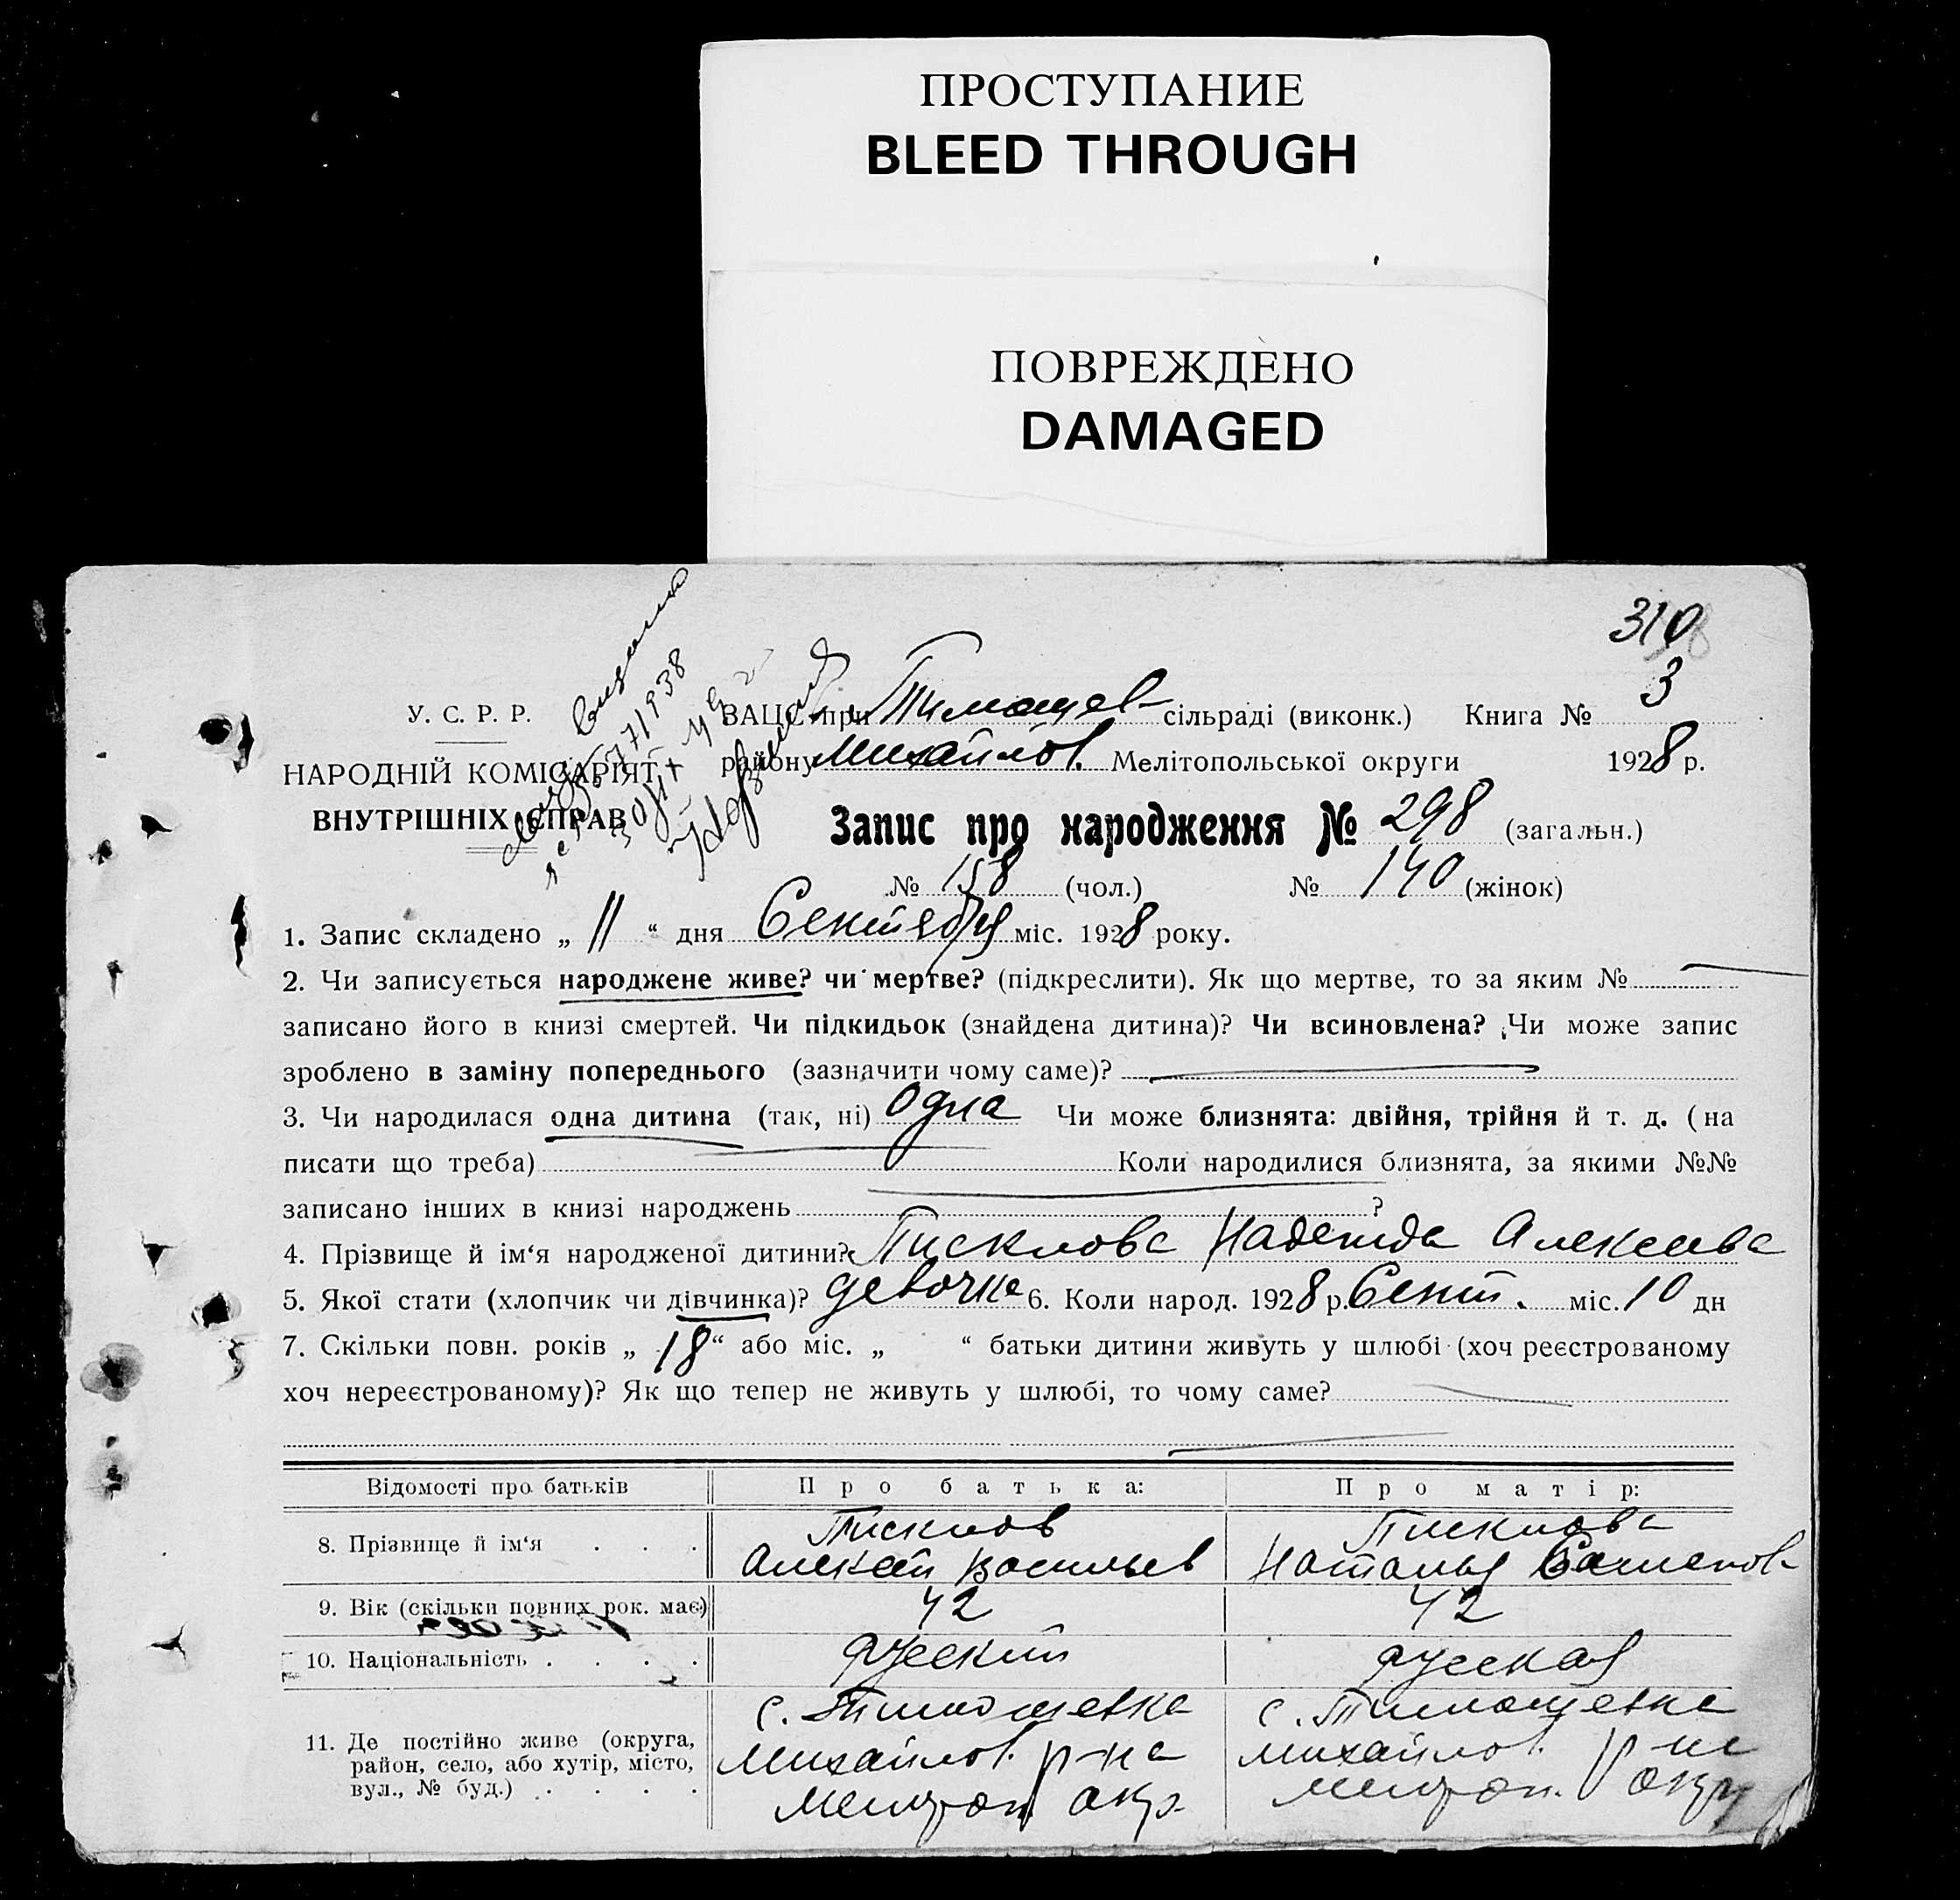 ПРОСТУПАНИЕ
BLEED THROUGH
ПОВРЕЖДЕНО
DAMAGED
310
У. С. Р. Р.
НАРОДНІЙ КОМІСАРІЯТ
ВНУТРІШНІХ СПРАВ
ЗАЦС при Тимошев- сільраді (виконк.) Книга № 3
району Михайлов. Мелітопольської округи 1928 р.
Запис про народження № 298 (загальн.)
№ 158 (чол.) № 140 (жінок)
1. Запис складено „ 11 “ дня Сентября міс. 1928 року.
2. Чи записується народжене живе? чи мертве? (підкреслити). Як що мертве, то за яким №
записано його в книзі смертей. Чи підкидьок (знайдена дитина)? Чи всиновлена? Чи може запис
зроблено в заміну попереднього (зазначити чому саме)?
3. Чи народилася одна дитина (так, ні) Одна Чи може близнята: двійня, трійня й т. д. (на
писати що треба) Коли народилися близнята, за якими №№
записано інших в книзі народжень ?
4. Прізвище й ім‘я народженої дитини? Писклова Надежда Алексеева
5. Якої стати (хлопчик чи дівчинка)? девочка 6. Коли народ. 1928 р. Сент. міс. 10 дн
7. Скільки повн. років „ 18 “ або міс. „ “ батьки дитини живуть у шлюбі (хоч реєстрованому
хоч нереєстрованому)? Як що тепер не живуть у шлюбі, то чому саме?
Відомості про батьків Про батька: Про матір:
8. Прізвище й ім‘я . . . Писклов Алексей Васильев Писклова Наталья
9. Вік (скільки повних рок. має) 42 42
10. Національність . . . . русский русская
11. Де постійно живе (округа, район, село, або хутір, місто, вул., № буд.) . . . . с. Тимошевка Михайлов. р-на Мелитоп. окр. с. Тимошевка Михайлов. р-на Мелитоп. окр